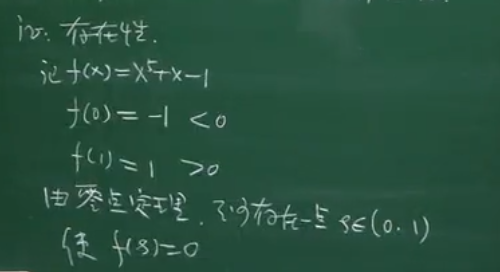 证：存在性.
记 f(x)=x⁵+x-1
f(0)=-1 <0
f(1)=1 >0
由零点定理，至少存在一点 ξ∈(0,1)
使 f(ξ)=0